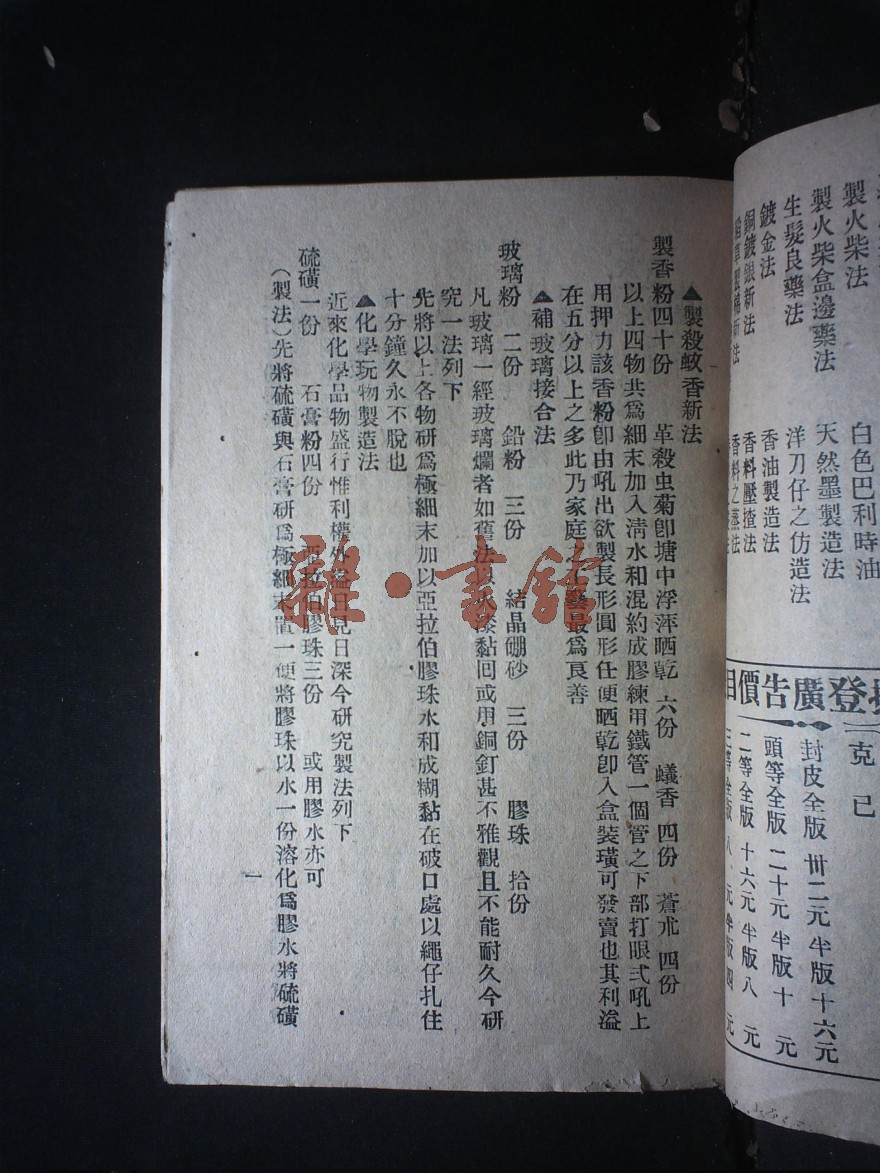 製火柴法
製火柴盒邊藥法
生髮良藥法
鍍金法
銅鍍銀新法
白色巴利時油
天然墨製造法
洋刀仔之仿造法
香油製造法
香料壓搾法
香料之蒸法
登廣告價目
克己
封皮全版 卅二元 半版十六元
頭等全版 二十元 半版十元
二等全版 十六元 半版八元
三等全版 八元 半版四元
▲製殺蚊香新法
製香粉四十份 革殺虫菊卽塘中浮萍晒乾 六份 蟻香 四份 蒼朮 四份
以上四物共爲細末加入淸水和混約成膠練用鐵管一個管之下部打眼弍吼上
用押力該香粉卽由吼出欲製長形圓形任便晒乾卽入盒裝璜可發賣也其利溢
在五分以上之多此乃家庭之工藝最爲良善
▲補玻璃接合法
玻璃粉 二份 鉛粉 三份 結晶硼砂 三份 膠珠 拾份
凡玻璃一經玻璃爛者如舊法以水漆黏囘或用銅釘甚不雅觀且不能耐久今研
究一法列下
先將以上各物研爲極細末加以亞拉伯膠珠水和成糊黏在破口處以繩仔扎住
十分鐘久永不脫也
▲化學玩物製造法
近來化學品物盛行惟利權外溢日見日深今研究製法列下
硫磺一份 石膏粉四份 亞拉伯膠珠三份 或用膠水亦可
(製法)先將硫磺與石膏研爲極細末置一便將膠珠以水一份溶化爲膠水將硫磺
一
雜·書館